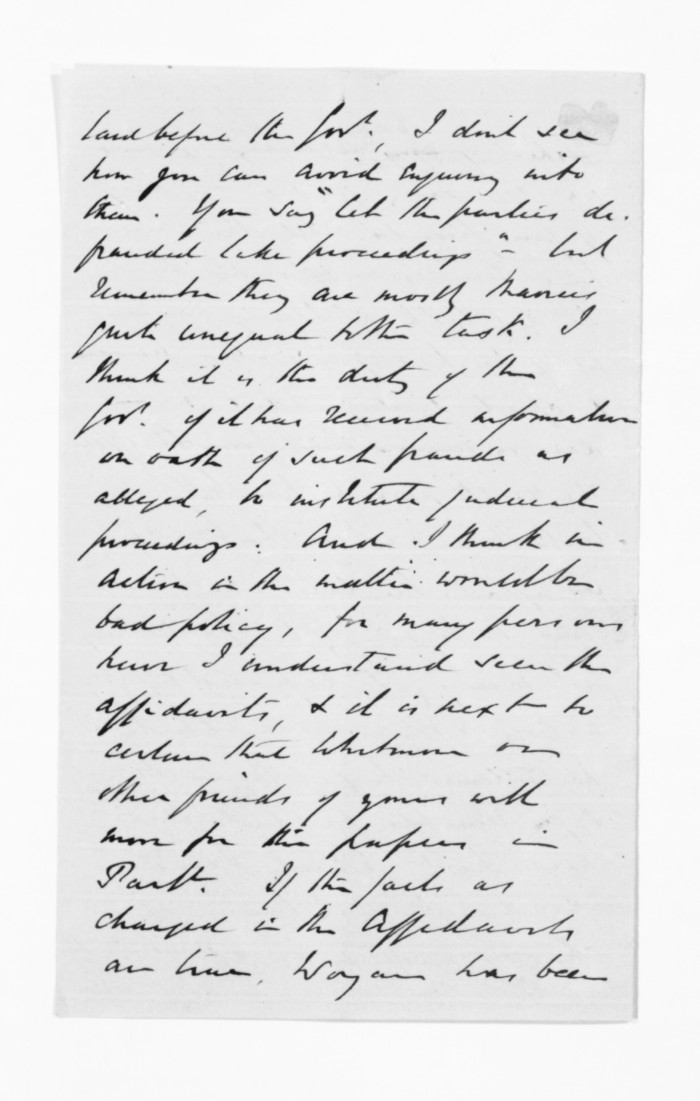 laid before the Govt., I don't see
how you can avoid enquiring into
them. You say "let the parties de-
frauded take proceedings" - but
remember they are mostly Maories
quite unequal to the task. I
think it is the duty of the
Govt. if it has received information
on oath of such frauds as
alleged, to institute judicial
proceedings. And I think in
action in the matter would be
bad policy, for many persons
have I understand seen the
affidavits, & it is next to
certain that Whitmore or
other friends of yours will
move for the papers in
Parlt. If the facts as
charged in the Affidavits
are true, has been